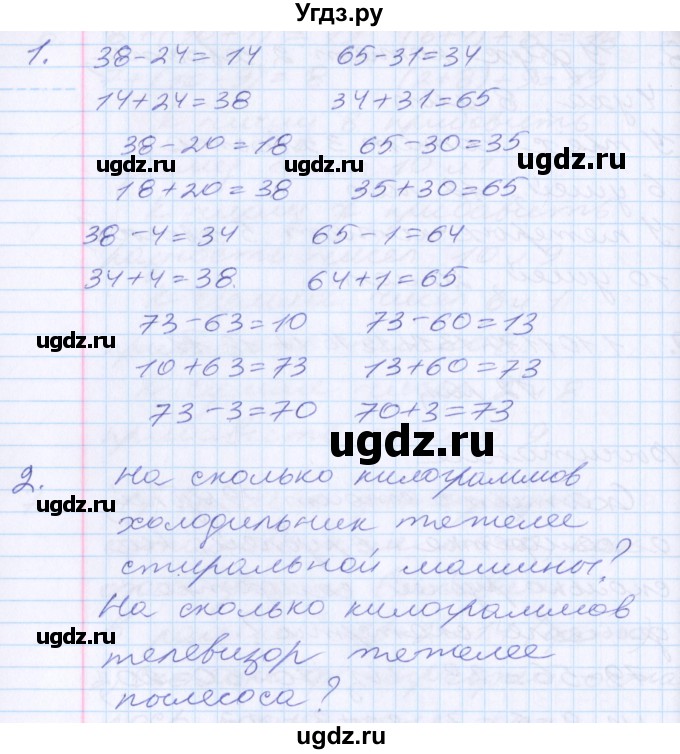 Угдз.ру
1. 38-24=14 65-31=34
14+24=38 34+31=65
38-20=18 65-30=35
ugdz.ru ugdz.ru ugdz.ru
18+20=38 35+30=65
38-4=34 65-1=64
34+4=38. 64+1=65
73-63=10 73-60=13
ugdz.ru
10+63=73 13+60=73
73-3=70 70+3=73
ugdz.ru
2. На сколько килограммов
ugdz.ru
холодильник тежелее
стиральной машины?
На сколько килограммов
ugdz.ru
телевизор тежелее
пылесоса?